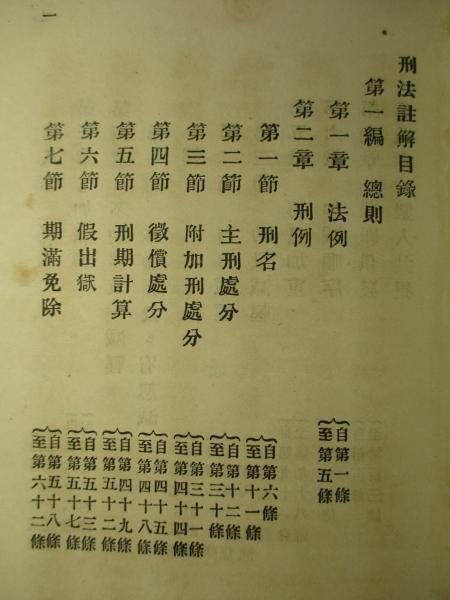 刑法註解目錄
第一編 總則
第一章 法例
自第一條
至第五條
第二章 刑例
第一節 刑名
自第六條
至第十一條
第二節 主刑處分
自第十二條
至第三十條
第三節 附加刑處分
自第三十一條
至第四十四條
第四節 徵償處分
自第四十五條
至第四十八條
第五節 刑期計算
自第四十九條
至第五十二條
第六節 假出獄
自第五十三條
至第五十七條
第七節 期滿免除
自第五十八條
至第六十二條
一